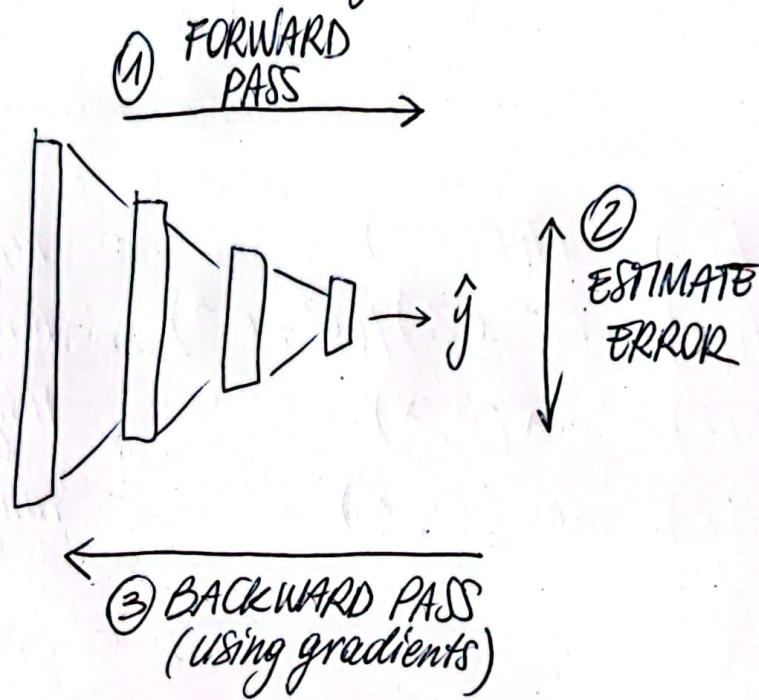 ① FORWARD
PASS
ŷ
②
ESTIMATE
ERROR
③ BACKWARD PASS
(using gradients)